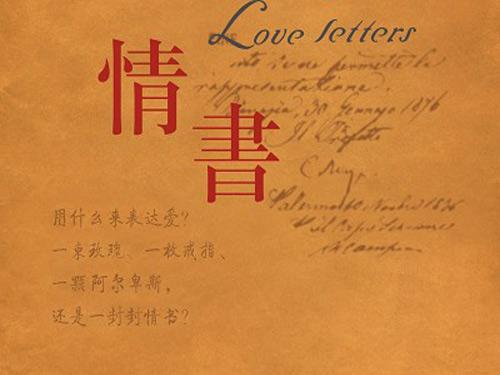 Love letters
情
書
rappresentazione.
Venezia, 30 Gennajo 1876
Il Prefetto
用什么来表达爱?
一束玫瑰、一枚戒指、
一颗阿尔卑斯,
还是一封封情书?